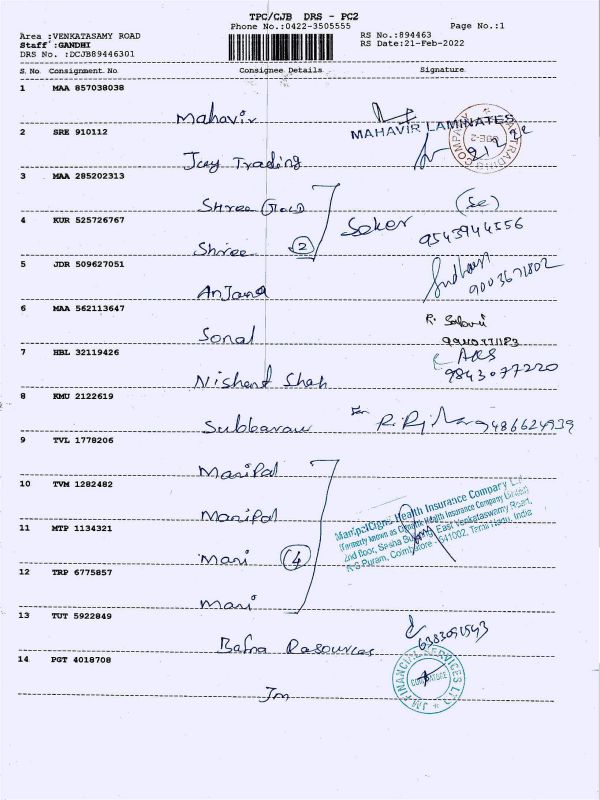 TPC/CJB DRS - PC2
Phone No.:0422-3505555
Page No.:1
Area :VENKATASAMY ROAD
RS No.:894463
Staff :GANDHI
RS Date:21-Feb-2022
DRS No. :DCJB89446301
S. No Consignment No Consignee Details Signature
1 MAA 857038038
Mahavir
MAHAVIR LAMINATES
2 SRE 910112
Jay Trading
3 MAA 285202313
Shree Gold (Se)
4 KUR 525726767
Seker 9543944556
Shree 2
5 JDR 509627051
Anjana 9003671802
6 MAA 562113647
Sonal
7 HBL 32119426
Nishant Shah 9843077220
8 KMU 2122619
9486624939
9 TVL 1778206
Manipal
10 TVM 1282482
Manipal
ManipalCigna Health Insurance Company Ltd
2nd Door, Sesha Building, East Venkataswamy Road,
R-S Puram, Coimbatore - 641002, Tamil Nadu, India
11 MTP 1134321
Mani 4
12 TRP 6775857
Mani
13 TUT 5922849
6383091543
Bafna Resources
14 PGT 4018708
Jm
JM FINANCIAL SERVICES LTD
COIMBATORE